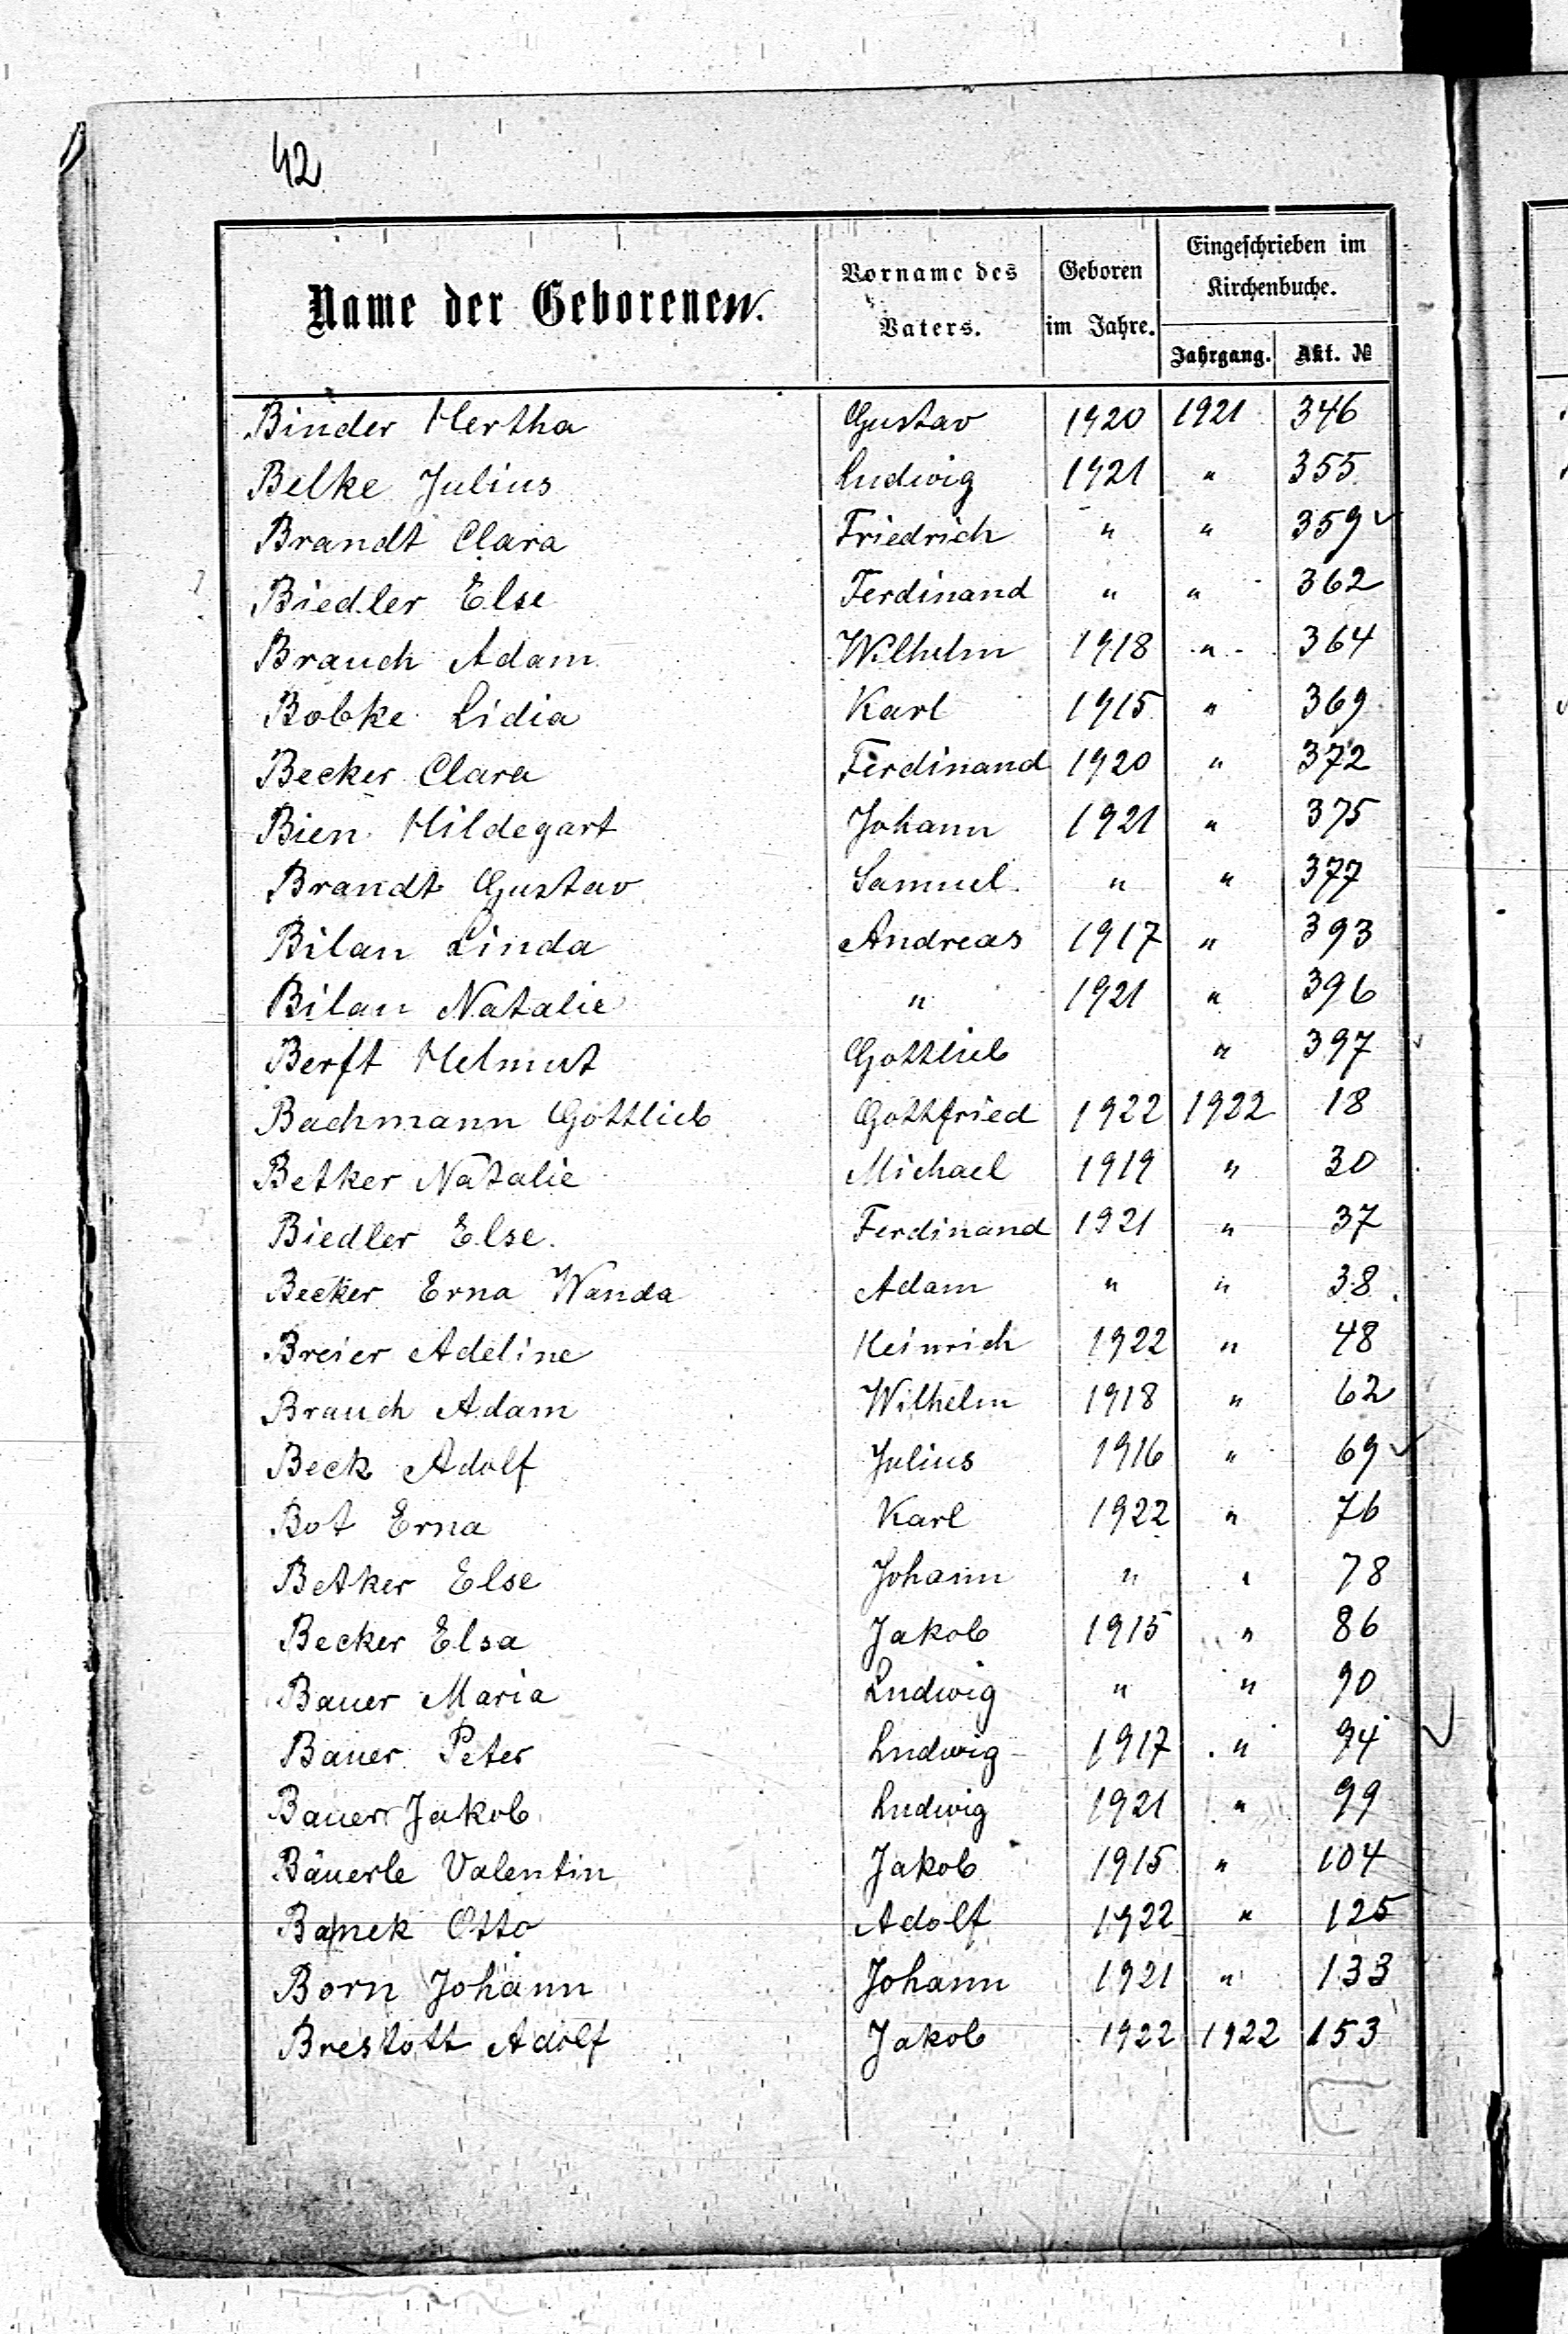 42
Name der Geborenen.
Vorname des Vaters.
Geboren im Jahre.
Eingeschrieben im Kirchenbuche.
Jahrgang. Akt. №
Binder Hertha Gustav 1920 1921 346
Belke Julius Ludwig 1921 " 355
Brandt Clara Friedrich " " 359 ✓
Biedler Else Ferdinand " " 362
Brauch Adam Wilhelm 1918 " 364
Bobke Lidia Karl 1915 " 369
Becker Clara Ferdinand 1920 " 372
Bien Hildegart Johann 1921 " 375
Brandt Gustav Samuel " " 377
Bilan Linda Andreas 1917 " 393
Bilan Natalie " 1921 " 396
Berft Helmut Gottlieb " 397
Bachmann Gottlieb Gottfried 1922 1922 18
Betker Natalie Michael 1919 " 30
Biedler Else Ferdinand 1921 " 37
Becker Erna Wanda Adam " " 38
Breier Adeline Heinrich 1922 " 48
Brauch Adam Wilhelm 1918 " 62
Beck Adolf Julius 1916 " 69 ✓
Bot Erna Karl 1922 " 76
Betker Else Johann " " 78
Becker Elsa Jakob 1915 " 86
Bauer Maria Ludwig " " 90
Bauer Peter Ludwig 1917 " 94 ✓
Bauer Jakob Ludwig 1921 " 99
Bäuerle Valentin Jakob 1915 " 104
Otto Adolf 1922 " 125
Born Johann Johann 1921 " 133
Brestott Adolf Jakob 1922 1922 153